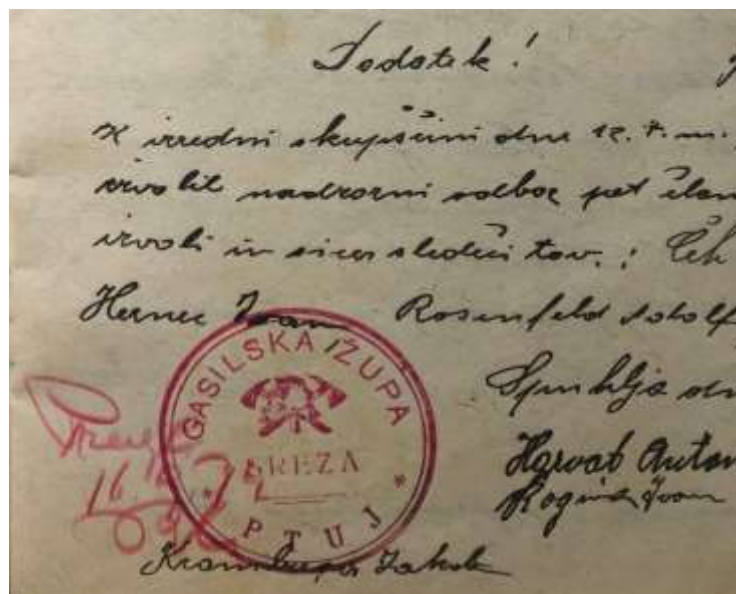 Dodatek!
K izredni skupščini dne 12. t. m.
izvolit nadzorni odbor pet član
izvoli in sicer sledeči tov.: Čeh
Hernec Ivan Rosenfeld Adolf,
Spuhlja dn
Horvat Anton
Rogina Ivan
GASILSKA ŽUPA
SREZA
* PTUJ *
Jakob